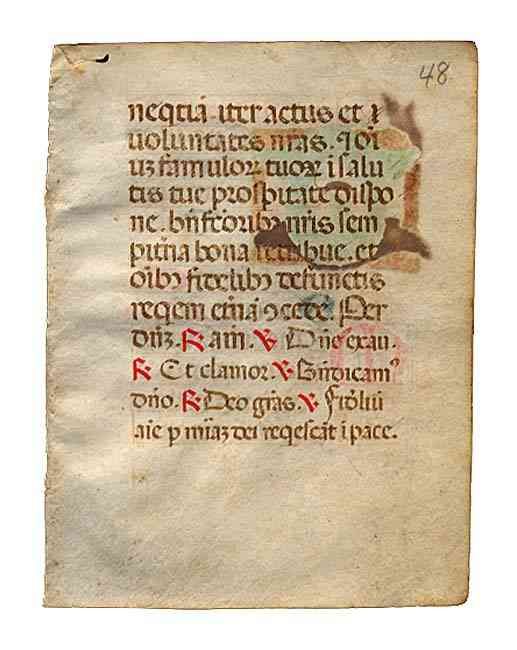 48
neqtiā iter actus et ⁊
uoluntates nrās. ⁊ oī
uz famulor tuor i salu
tis tue prosperitate dispo
ne. bn̄fcorib; nr̄is sem
pitn̄a bona retribue. et
oīb; fidelib; defunctis
reqem etn̄ā ꝯcede. Per
dn̄z. ℟ am̄. ℣ Dn̄e exau.
℟ Et clamor. ℣ Bn̄dicamꝰ
dn̄o. ℟ Deo grās. ℣ Fidēliū
aīe p mīaz dei reqescāt i pace.